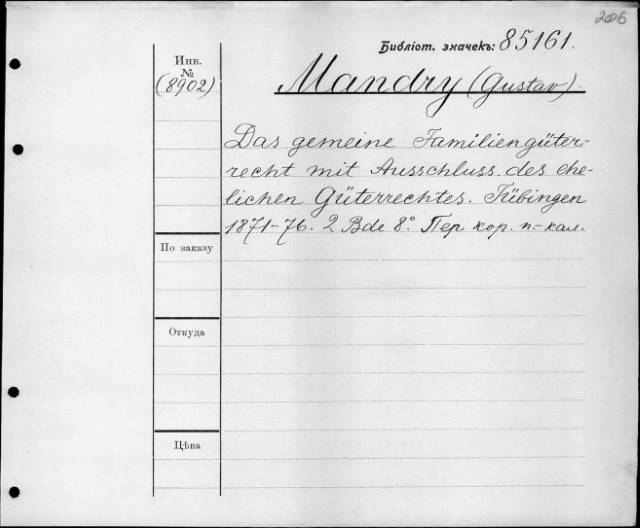 206
Библіот. значекъ: 85161.
Инв.
№
(8902)
Mandry (Gustav).
Das gemeine Familiengüter-
recht mit Ausschluss des ehe-
lichen Güterrechtes. Tübingen
1871-76. 2 Bde 8°. Пер кор. п.-кал.
По заказу
Откуда
Цѣна